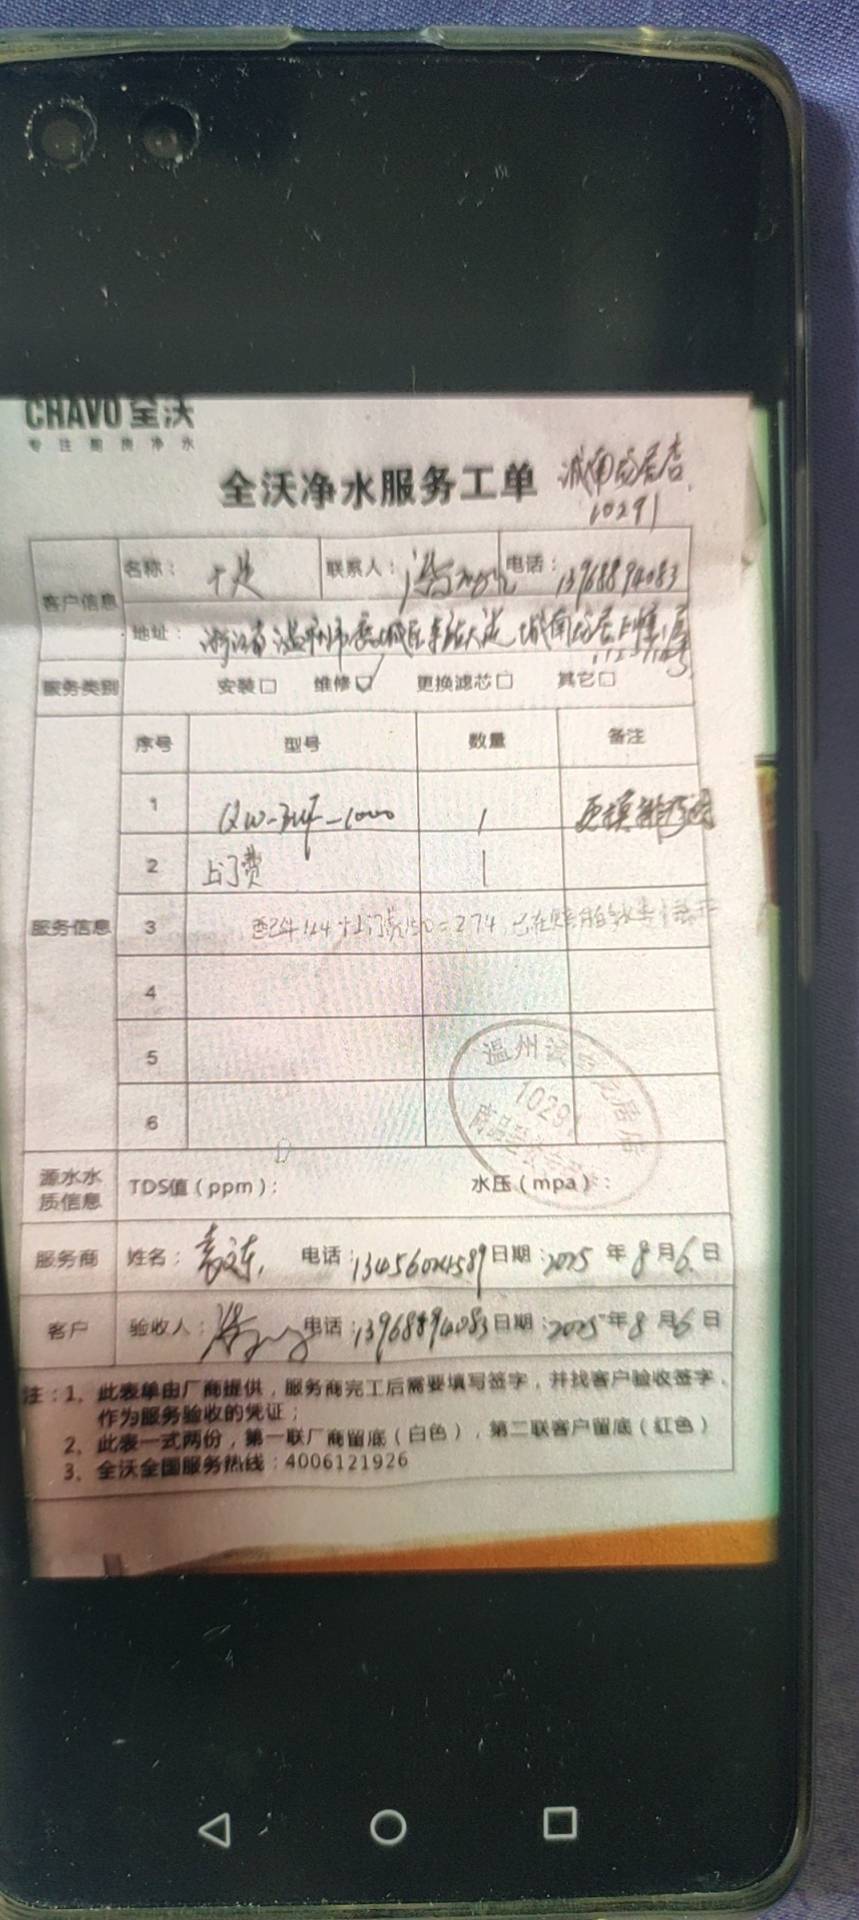 CHAVO 全沃
专注厨房净水
全沃净水服务工单 城南龙居店
10291
客户信息 名称： 联系人： 电话：13968894083
地址：浙江省温州市鹿城区车站大道 城南龙居
服务类别 安装□ 维修☑ 更换滤芯□ 其它□
服务信息 序号 型号 数量 备注
1 QW-3UF-1000 1 更换
2 上门费 1
3 配件124+上门费150=274，已在
4
5
6
温州
10291
源水水质信息 TDS值（ppm）： 水压（mpa）：
服务商 姓名： 电话：13456024589 日期：2025年8月6日
客户 验收人： 电话：13968894083 日期：2025年8月6日
注：1、此表单由厂商提供，服务商完工后需要填写签字，并找客户验收签字，
作为服务验收的凭证；
2、此表一式两份，第一联厂商留底（白色），第二联客户留底（红色）
3、全沃全国服务热线：4006121926